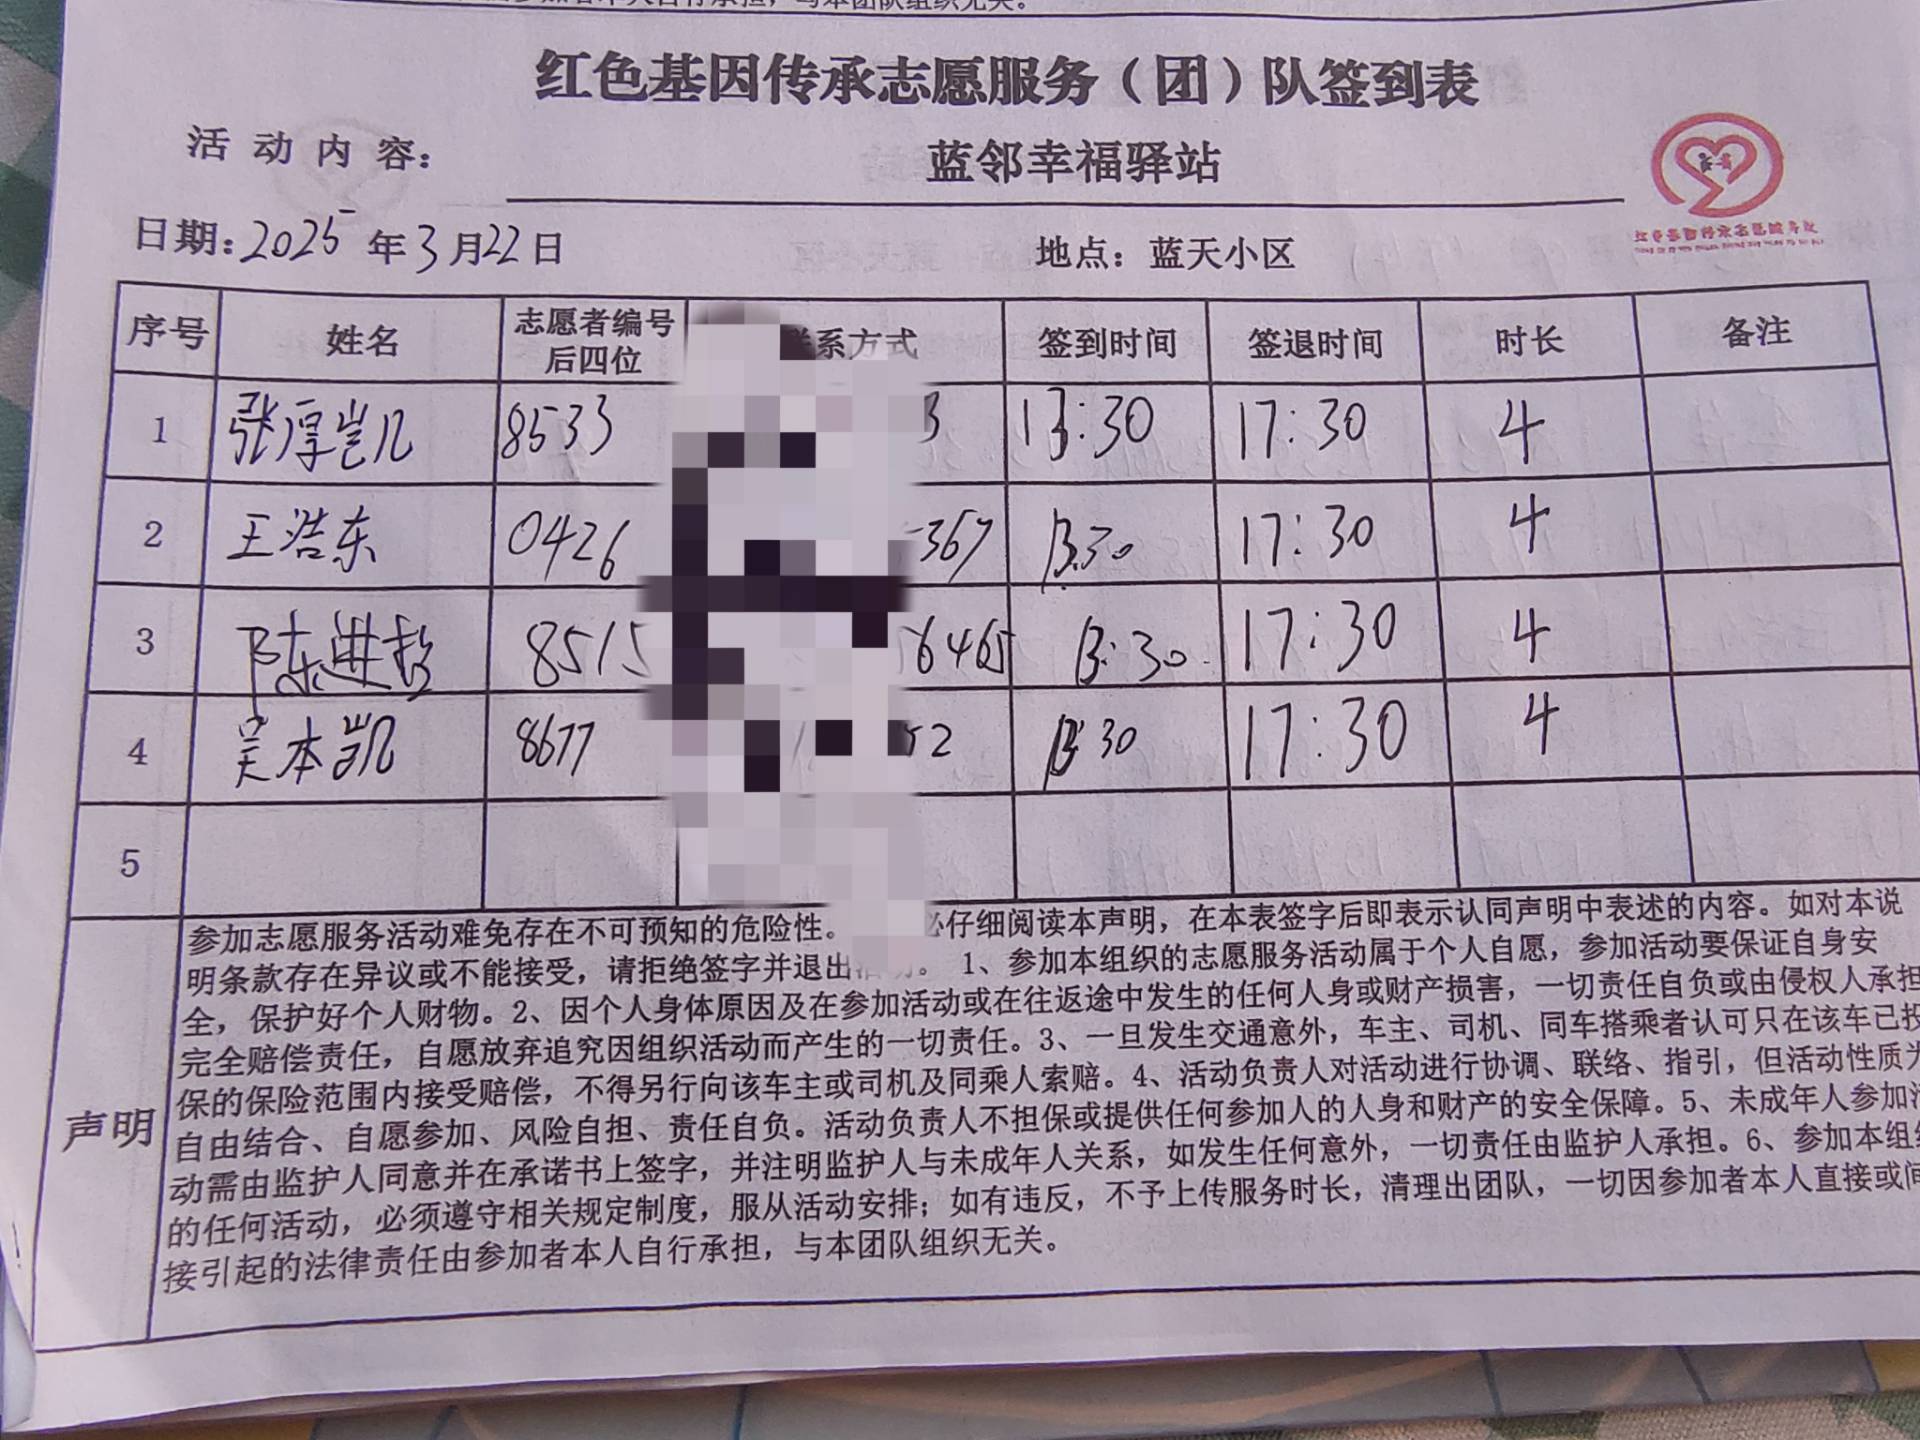 红色基因传承志愿服务（团）队签到表
活动内容： 蓝邻幸福驿站
日期：2025年3月22日 地点：蓝天小区
序号 姓名 志愿者编号后四位 系方式 签到时间 签退时间 时长 备注
1 张厚凯 8533 3 13:30 17:30 4
2 王浩东 0426 367 13:30 17:30 4
3 陈进 8515 6465 13:30 17:30 4
4 吴本凯 8677 52 13:30 17:30 4
5
声明
参加志愿服务活动难免存在不可预知的危险性。 仔细阅读本声明，在本表签字后即表示认同声明中表述的内容。如对本说
明条款存在异议或不能接受，请拒绝签字并退出活动。 1、参加本组织的志愿服务活动属于个人自愿，参加活动要保证自身安
全，保护好个人财物。2、因个人身体原因及在参加活动或在往返途中发生的任何人身或财产损害，一切责任自负或由侵权人承担
完全赔偿责任，自愿放弃追究因组织活动而产生的一切责任。3、一旦发生交通意外，车主、司机、同车搭乘者认可只在该车已投
保的保险范围内接受赔偿，不得另行向该车主或司机及同乘人索赔。4、活动负责人对活动进行协调、联络、指引，但活动性质为
自由结合、自愿参加、风险自担、责任自负。活动负责人不担保或提供任何参加人的人身和财产的安全保障。5、未成年人参加活
动需由监护人同意并在承诺书上签字，并注明监护人与未成年人关系，如发生任何意外，一切责任由监护人承担。6、参加本组织
的任何活动，必须遵守相关规定制度，服从活动安排；如有违反，不予上传服务时长，清理出团队，一切因参加者本人直接或间
接引起的法律责任由参加者本人自行承担，与本团队组织无关。